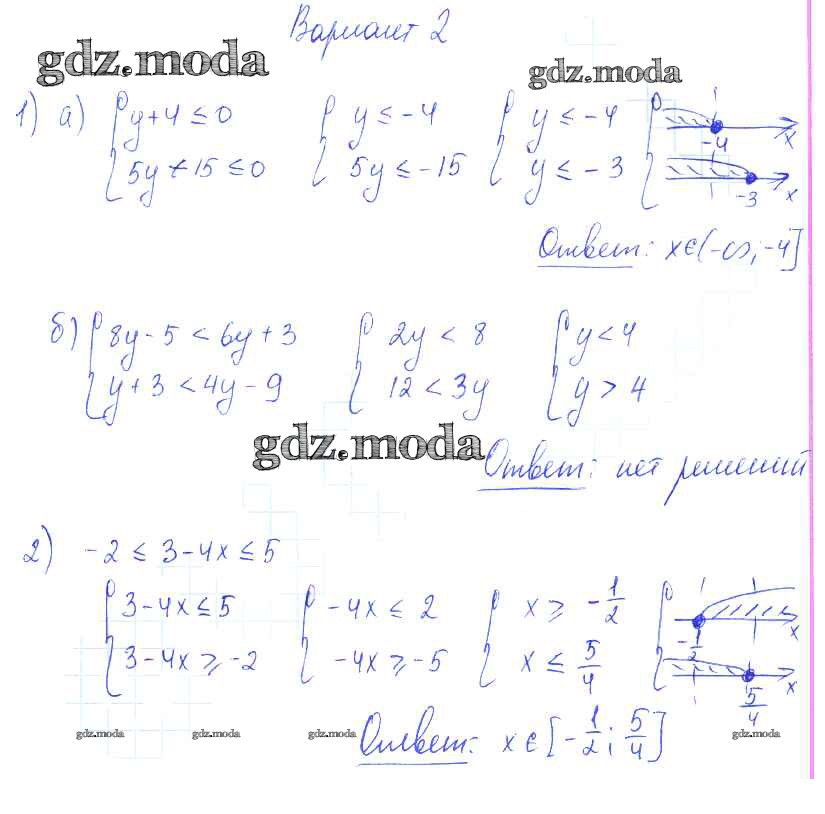 Вариант 2
gdz.moda
gdz.moda
1) а) { y+4 ≤ 0 { y ≤ -4 { y ≤ -4 -4 x
5y+15 ≤ 0 5y ≤ -15 y ≤ -3 -3 x
Ответ: x∈(-∞; -4]
б) { 8y-5 < 6y+3 { 2y < 8 { y < 4
y+3 < 4y-9 12 < 3y y > 4
gdz.moda
Ответ: нет решений
2) -2 ≤ 3-4x ≤ 5
{ 3-4x ≤ 5 { -4x ≤ 2 { x ≥ -1/2 -1/2 x
3-4x ≥ -2 -4x ≥ -5 x ≤ 5/4 5/4 x
gdz.moda gdz.moda gdz.moda gdz.moda
Ответ: x∈[-1/2; 5/4]